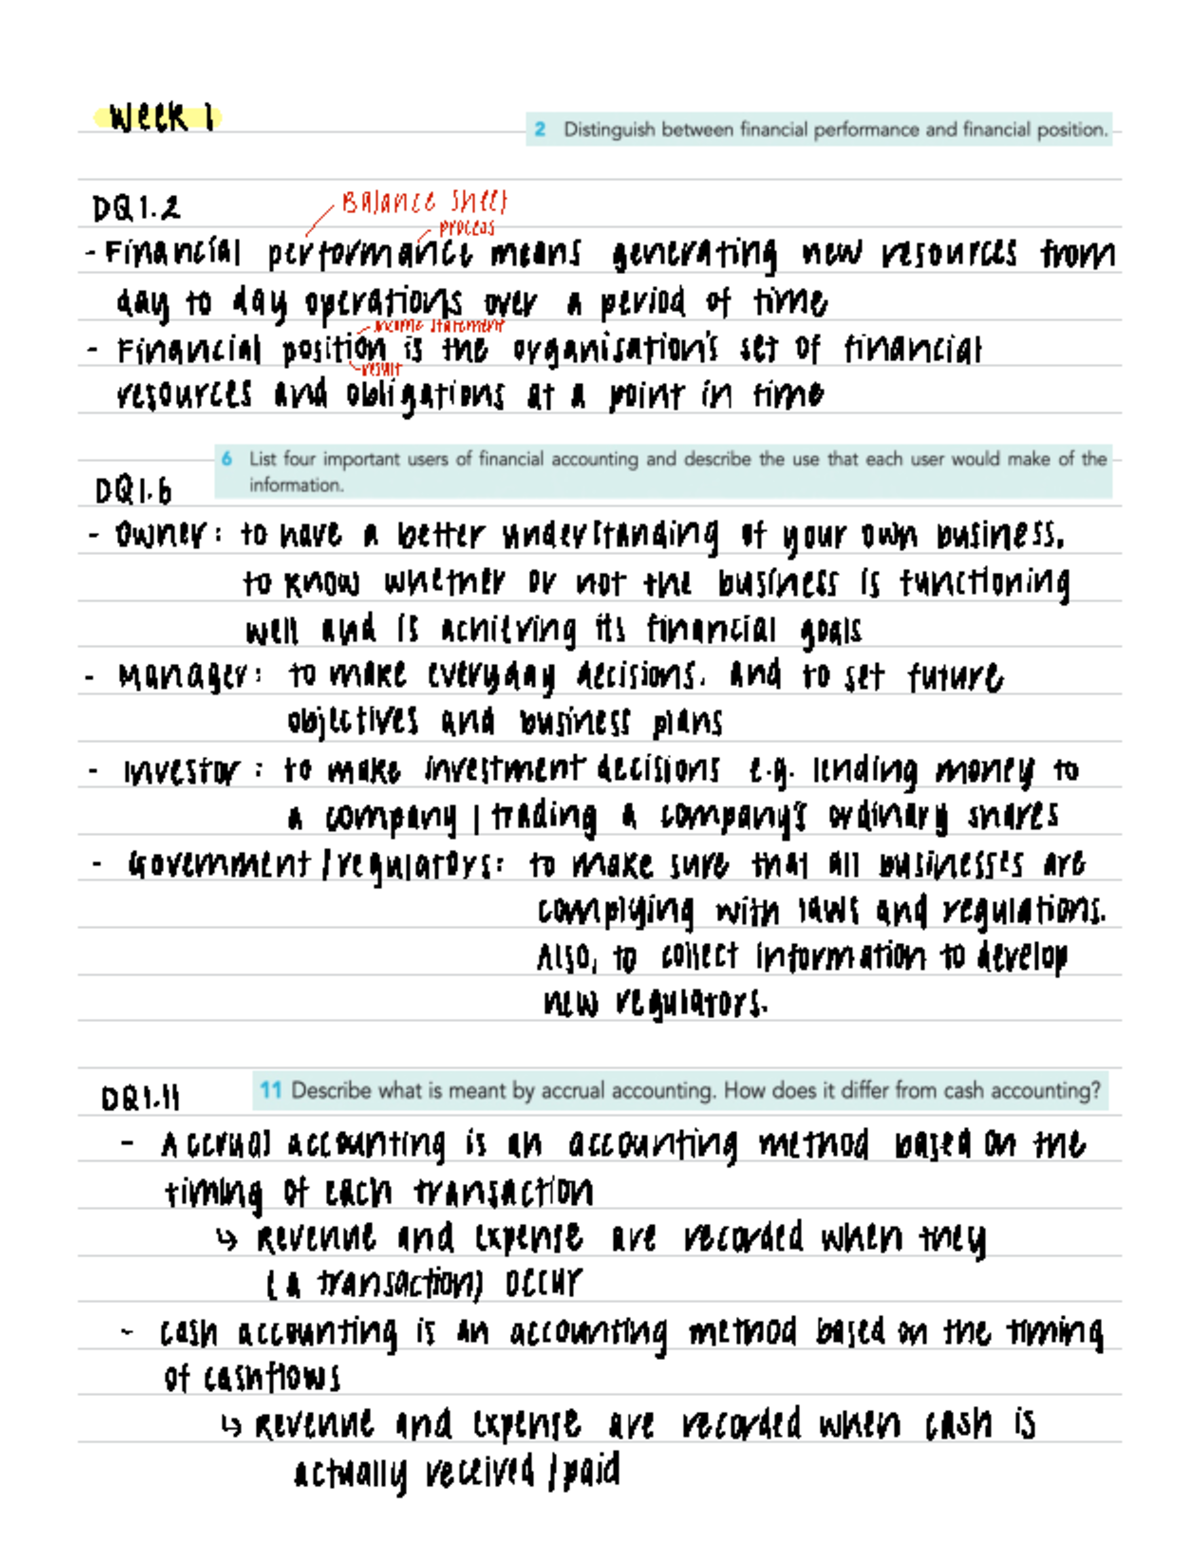 Week 1
2 Distinguish between financial performance and financial position.
DQ1.2
Balance sheet
process
- Financial performance means generating new resources from
day to day operations over a period of time
income statement
- Financial position is the organisation's set of financial
result
resources and obligations at a point in time
6 List four important users of financial accounting and describe the use that each user would make of the
information.
DQ1.6
- Owner: to have a better understanding of your own business.
to know whether or not the business is functioning
well and is achieving its financial goals
- Manager: to make everyday decisions. And to set future
objectives and business plans
- Investor: to make investment decisions e.g. lending money to
a company / trading a company's ordinary shares
- Government/regulators: to make sure that all businesses are
complying with laws and regulations.
Also, to collect information to develop
new regulators.
DQ1.11
11 Describe what is meant by accrual accounting. How does it differ from cash accounting?
- Accrual accounting is an accounting method based on the
timing of each transaction
↳ Revenue and expense are recorded when they
(a transaction) occur
- cash accounting is an accounting method based on the timing
of cashflows
↳ Revenue and expense are recorded when cash is
actually received/paid